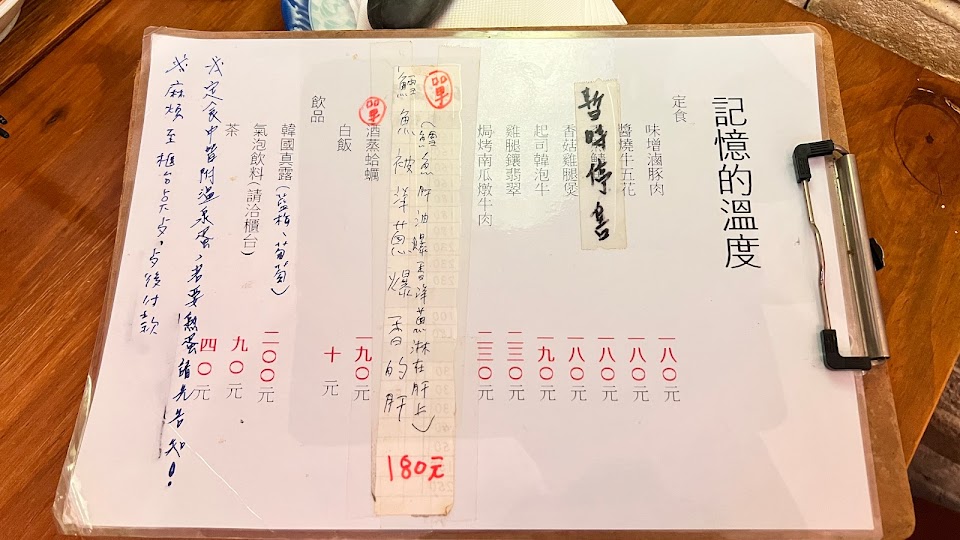 記憶的溫度
定食
味增滷豚肉 一八〇元
醬燒牛五花 一八〇元
暫時停售
一八〇元
香菇雞腿煲 一八〇元
起司韓泡牛 一九〇元
雞腿鑲翡翠 二三〇元
焗烤南瓜燉牛肉 二三〇元
單
(鱈魚肝油爆香洋蔥淋在肝上)
鱈魚被洋蔥爆香的肝
180元
單
酒蒸蛤蠣 一九〇元
白飯 十元
飲品
韓國真露(藍梅、葡萄) 二〇〇元
氣泡飲料(請洽櫃台) 九〇元
茶 四〇元
※定食中皆附溫泉蛋,若要熟蛋請先告知!
※麻煩至櫃台点,点後付款